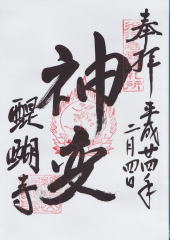 奉拝
平成廿四年
二月四日
神变
醍醐寺